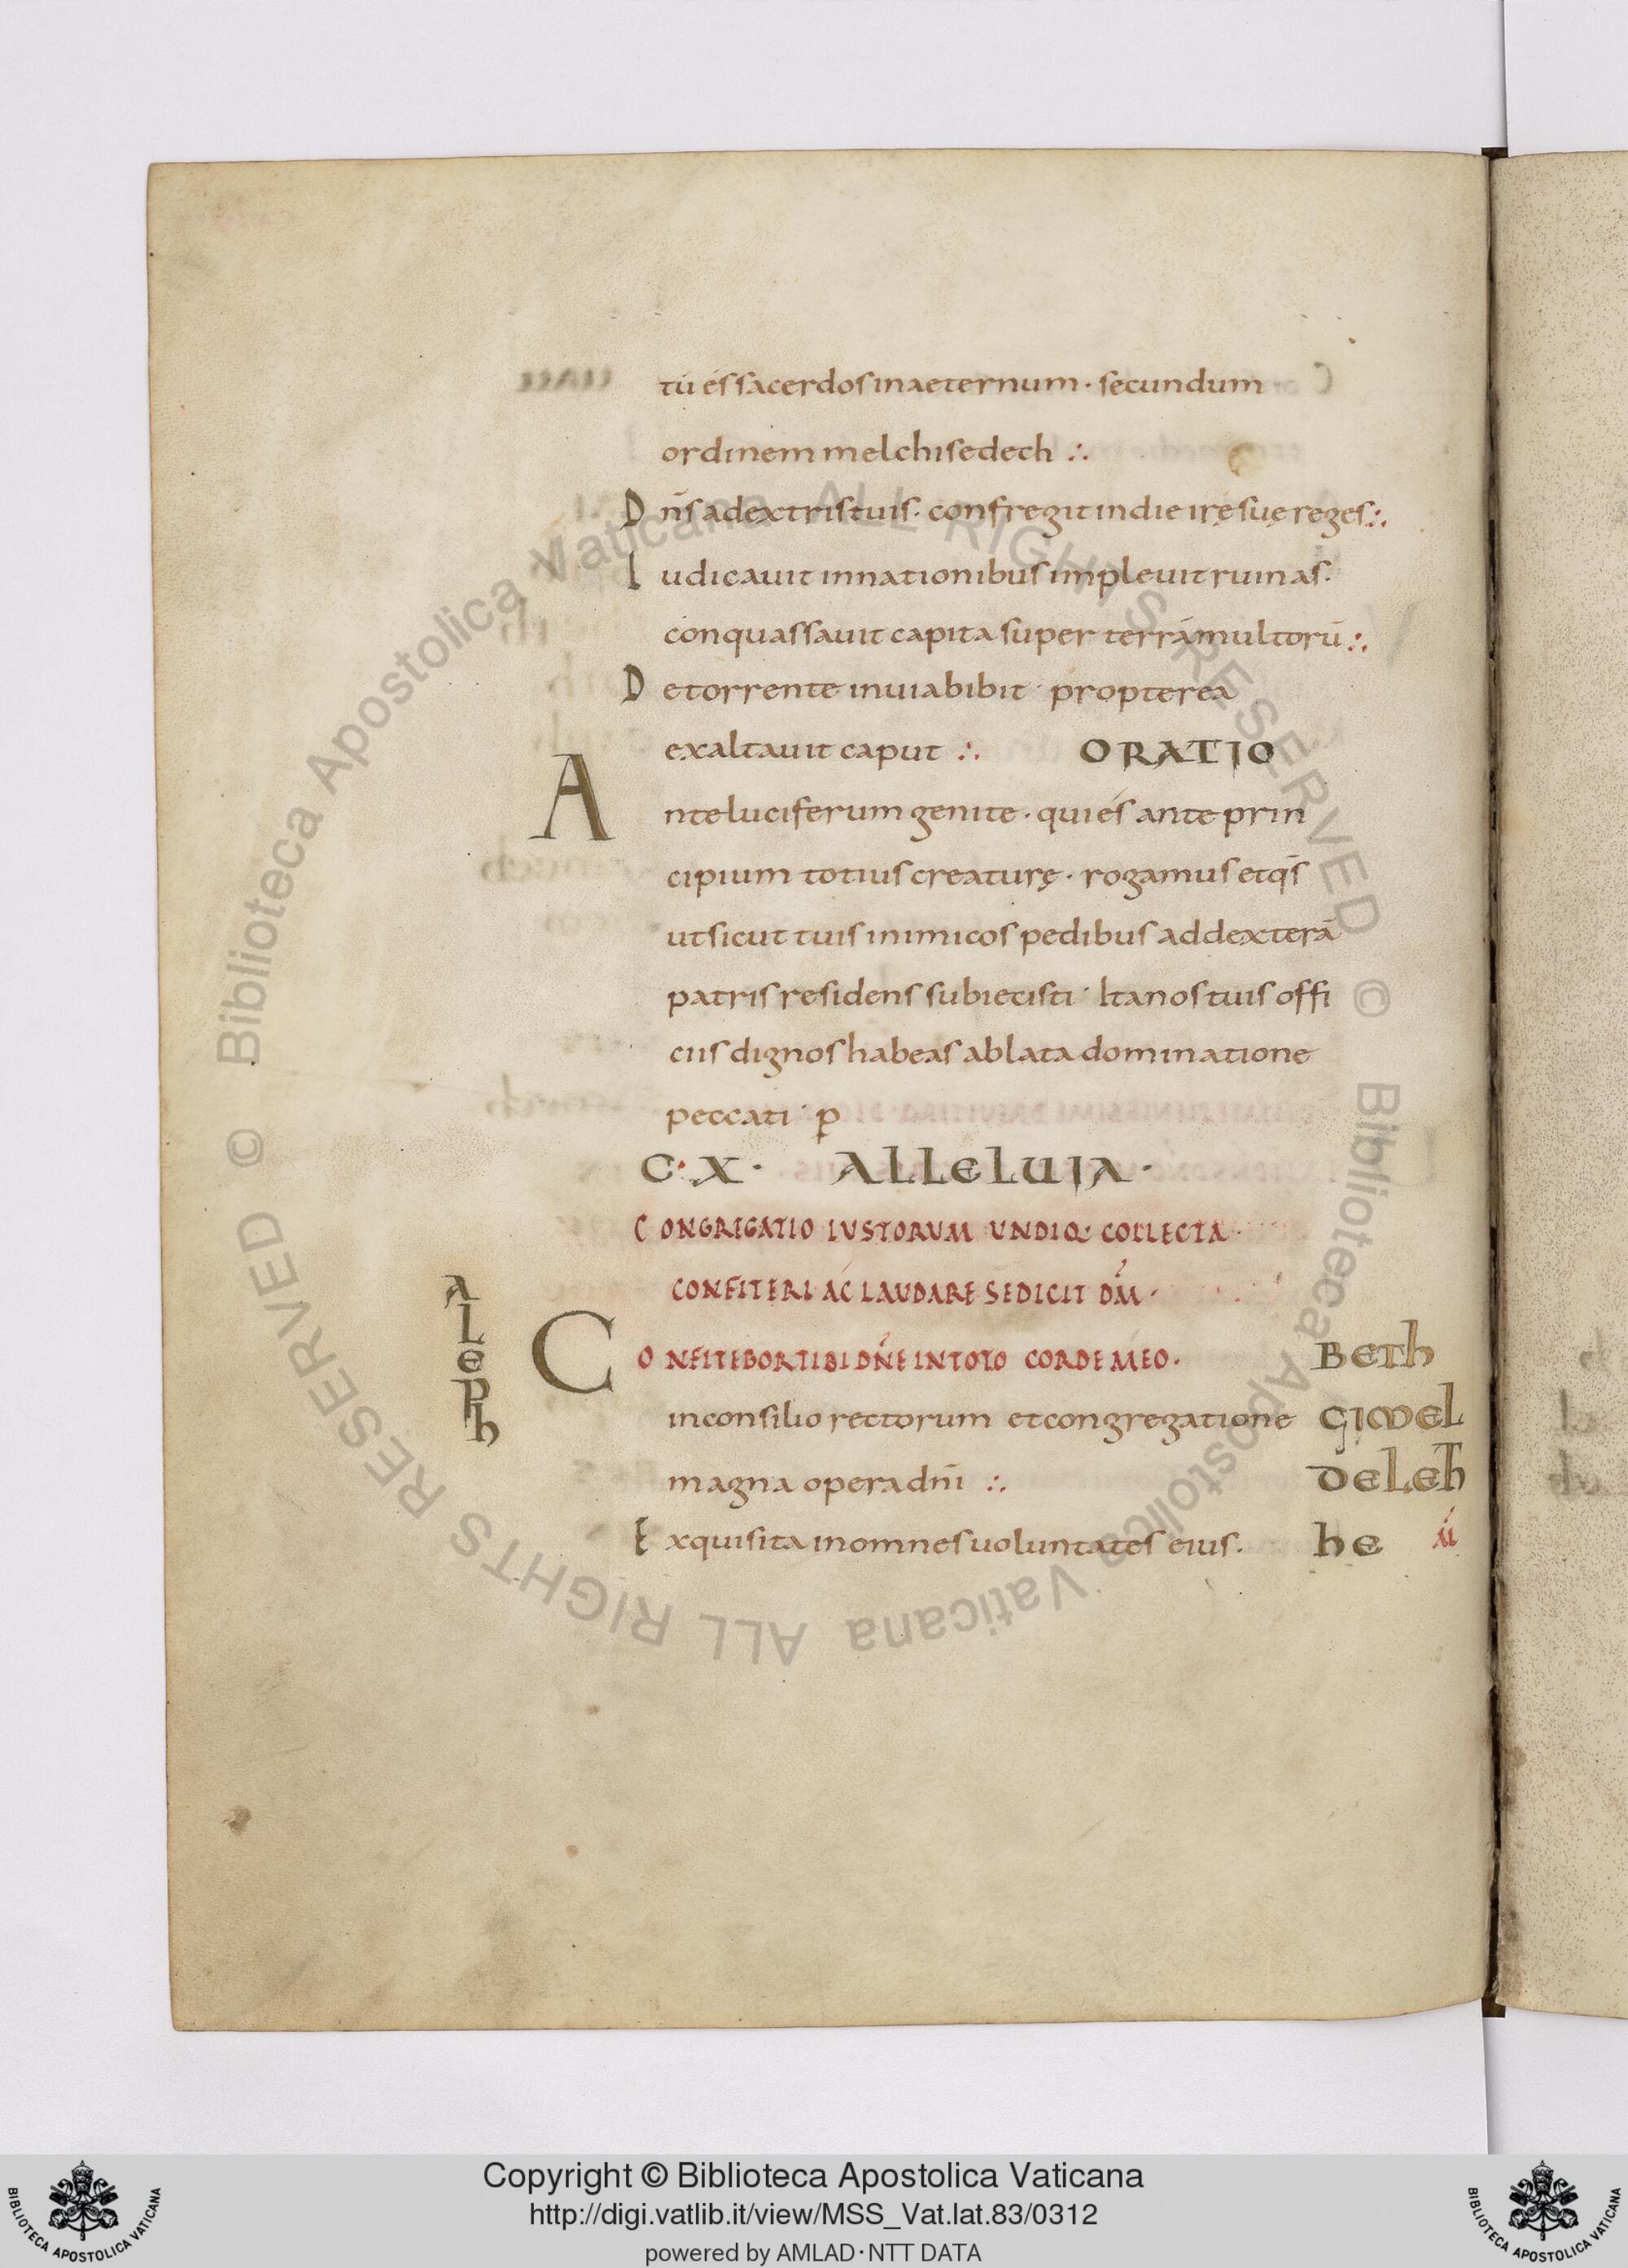 tú és sacerdos in aeternum · secundum
ordinem melchisedech ∴
Dn̄s a dextris tuis · confregit in die irę suę reges ∴
Iudicauit in nationibus impleuit ruinas ·
conquassauit capita super terrā multorū ∴
De torrente in uia bibit · propterea
exaltauit caput ∴ ORATIO
Ante luciferum genite · qui és ante prin
cipium totius creaturę · rogamus et qs̄
ut sicut tuis inimicos pedibus ad dexterā
patris residens subiecisti · Ita nos tuis offi
ciis dignos habeas ablata dominatione
peccati · p̄
C·X· ALLELUIA ·
CONGRIGATIO IUSTORUM UNDIQ· COLLECTA ·
CONFITERI AC LAUDARE SE DICIT DM̄ ·
ALEPH
CONFITEBOR TIBI DN̄E IN TOTO CORDE MEO · BETH
in consilio rectorum et congregatione GIMEL
magna opera dn̄i ∴ DELETH
Exquisita in omnes uoluntates eius · HE
© Biblioteca Apostolica Vaticana ALL RIGHTS RESERVED © Biblioteca Apostolica Vaticana ALL RIGHTS RESERVED
Copyright © Biblioteca Apostolica Vaticana
http://digi.vatlib.it/view/MSS_Vat.lat.83/0312
powered by AMLAD·NTT DATA
BIBLIOTECA APOSTOLICA VATICANA
BIBLIOTECA APOSTOLICA VATICANA